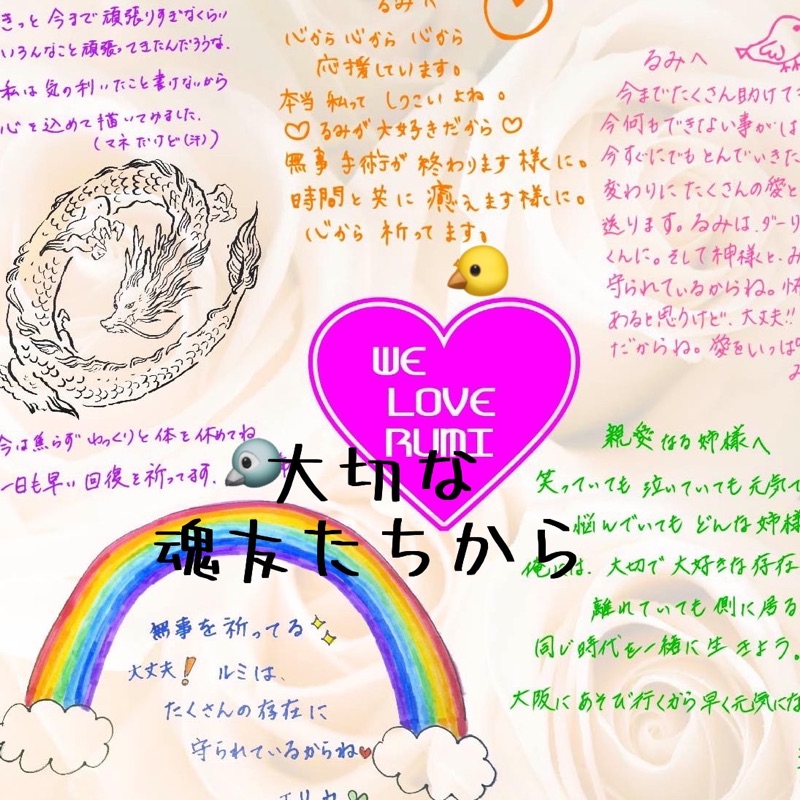 きっと今まで頑張りすぎなくらい
いろんなこと頑張ってきたんだろうな.
私は気の利いたこと書けないから
心を込めて描いてみました.
(マネだけど(汗))
今は焦らずゆっくりと体を休めてね
一日も早い回復を祈ってます.
るみへ
心から心から心から
応援しています。
本当私ってしつこいよね。
♡るみが大好きだから♡
無事手術が終わります様に。
時間と共に癒えます様に。
心から祈ってます。
るみへ
今までたくさん助けて
今何もできない事が
今すぐにでもとんでいきた
変わりにたくさんの愛と
送ります。るみは、ダーリ
くんに。そして神様と、み
守られているからね。怖
あると思うけど、大丈夫!!
だからね。愛をいっぱ
WE
LOVE
RUMI
大切な
魂友たちから
親愛なる姉様へ
笑っていても泣いていても元気で
悩んでいてもどんな姉様
大切で大好きな存在
離れていても側に居る
同じ時代を一緒に生きよう。
大阪にあそび行くから早く元気にな
無事を祈ってる
大丈夫❗ルミは、
たくさんの存在に
守られているからね
エリカ